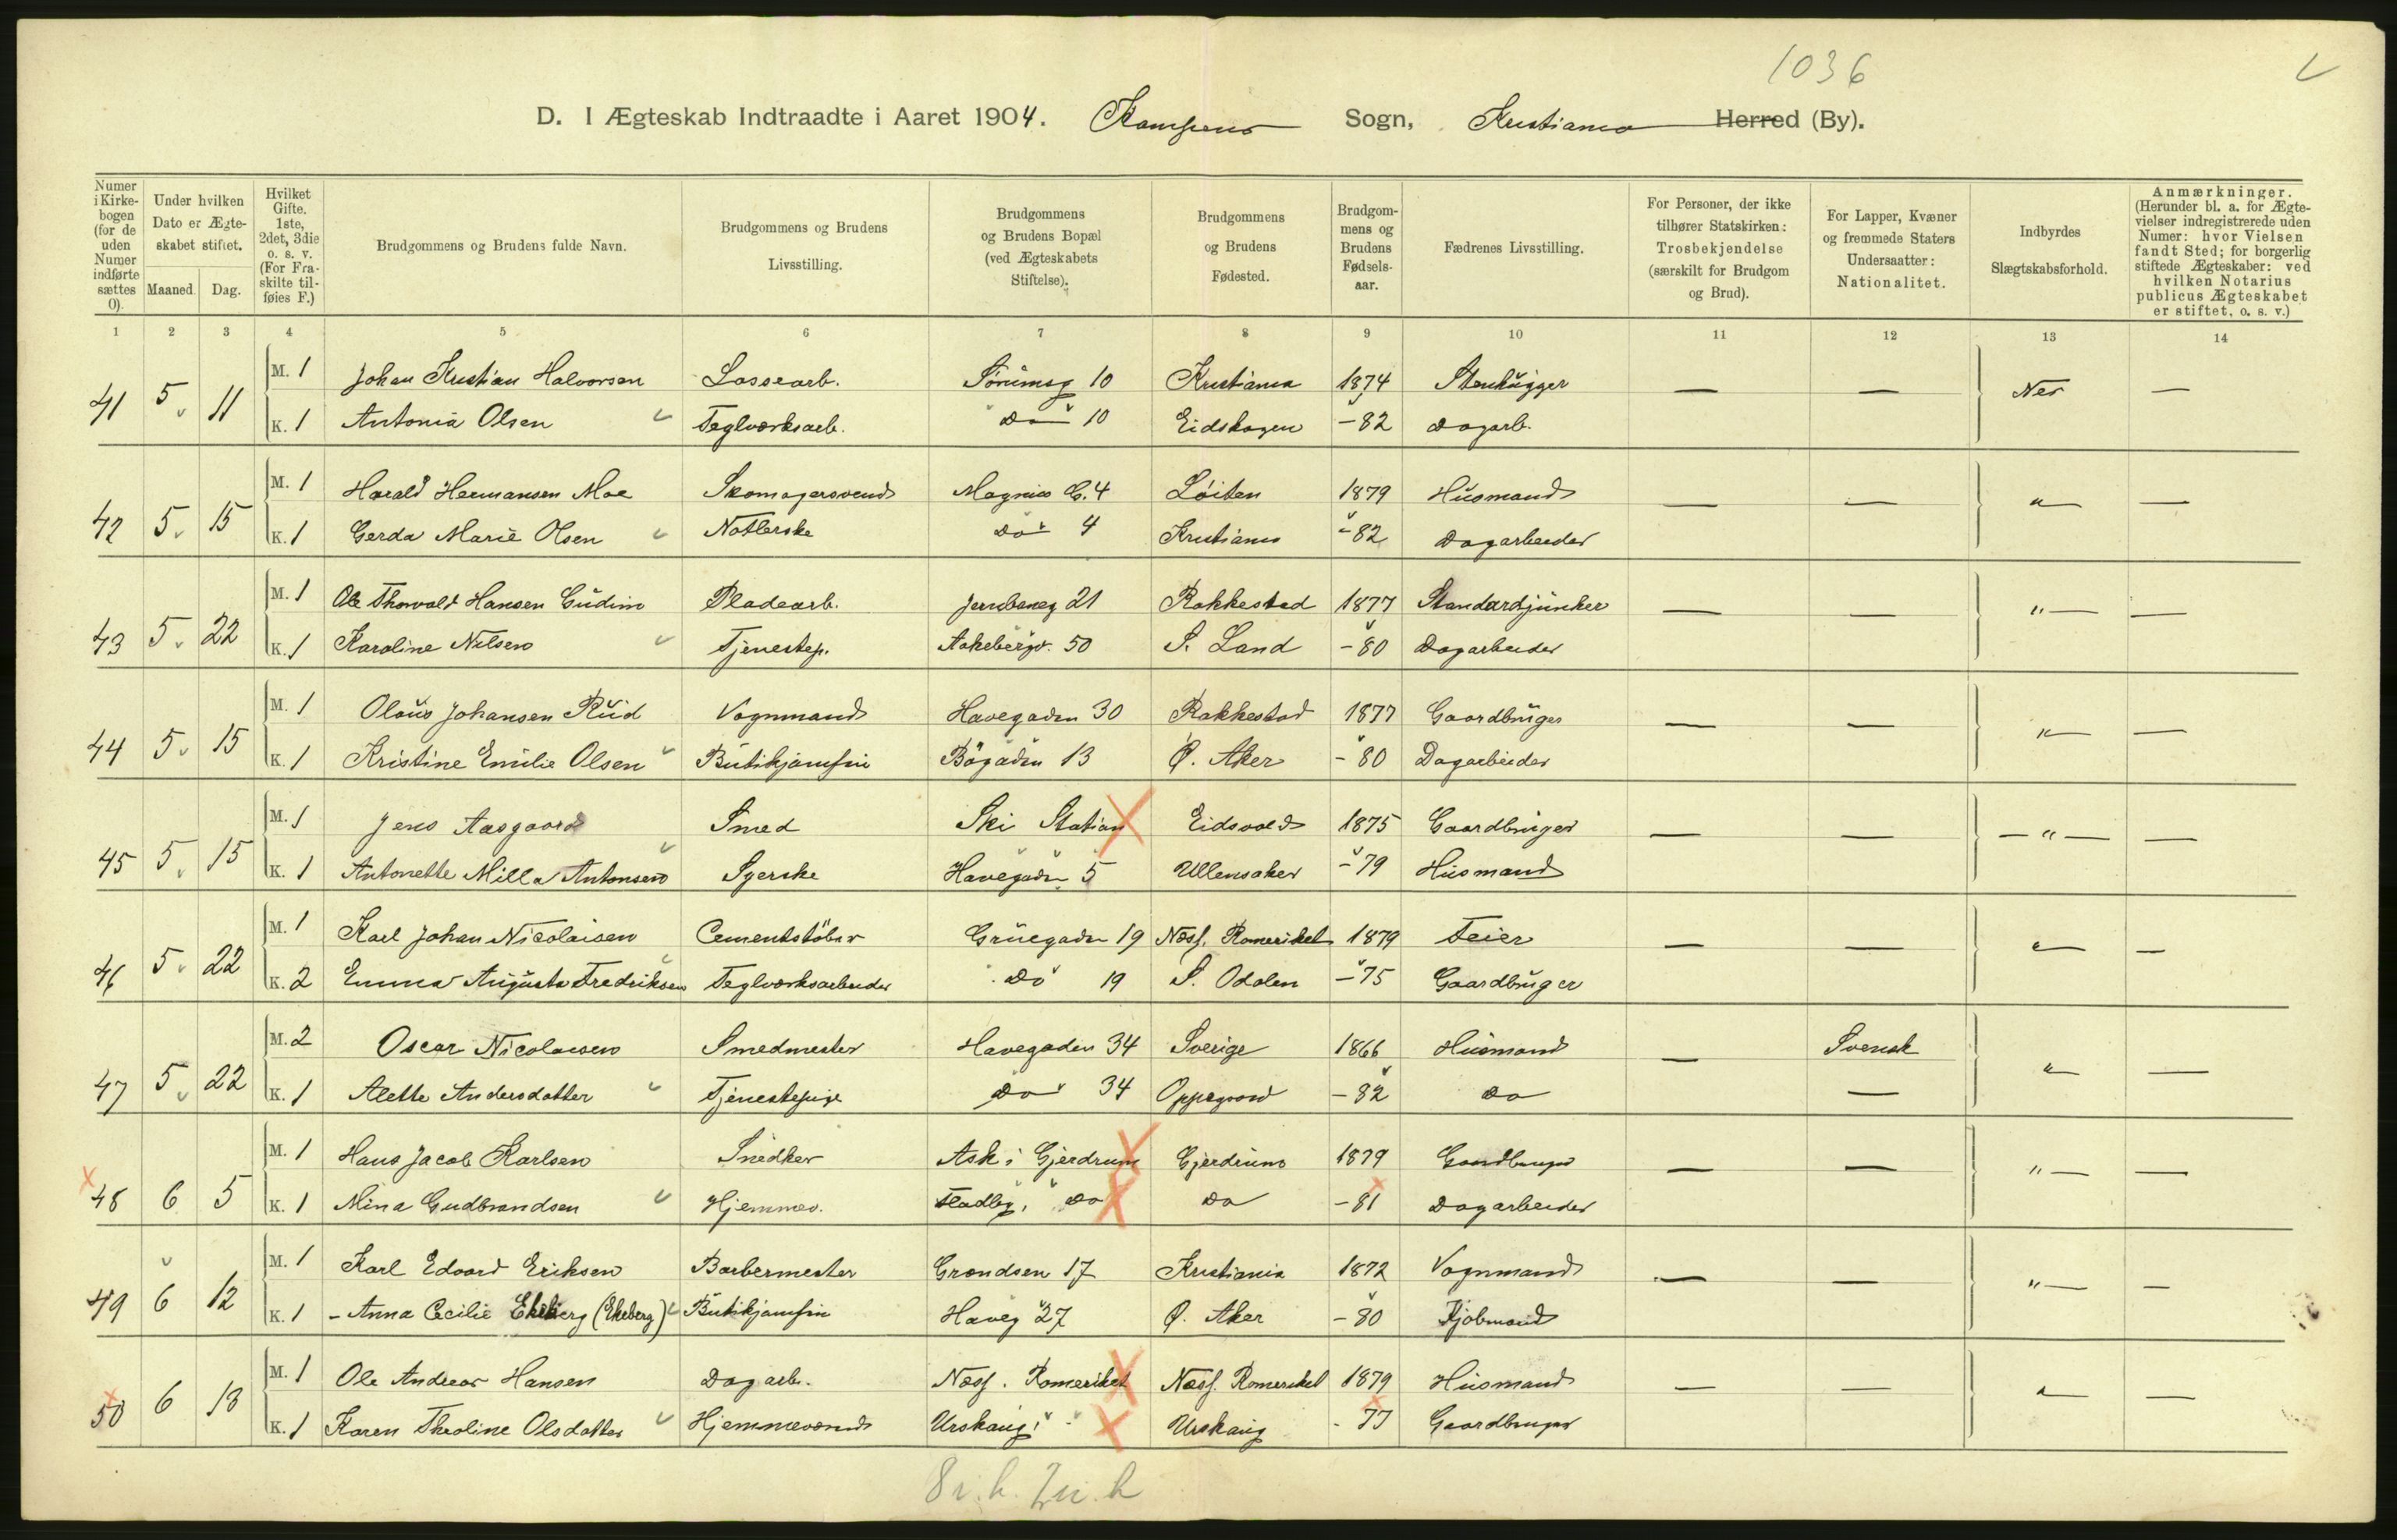 1036
D. I Ægteskab Indtraadte i Aaret 1904. Kampens Sogn, Kristiania Herred (By).
Numer i Kirkebogen (for de uden Numer indførte sættes 0). | Under hvilken Dato er Ægteskabet stiftet. Maaned. Dag. | Hvilket Gifte. 1ste, 2det, 3die o. s. v. (For Fraskilte tilføies F.) | Brudgommens og Brudens fulde Navn. | Brudgommens og Brudens Livsstilling. | Brudgommens og Brudens Bopæl (ved Ægteskabets Stiftelse). | Brudgommens og Brudens Fødested. | Brudgommens og Brudens Fødselsaar. | Fædrenes Livsstilling. | For Personer, der ikke tilhører Statskirken: Trosbekjendelse (særskilt for Brudgom og Brud). | For Lapper, Kvæner og fremmede Staters Undersaatter: Nationalitet. | Indbyrdes Slægtskabsforhold. | Anmærkninger. (Herunder bl. a. for Ægtevielser indregistrerede uden Numer: hvor Vielsen fandt Sted; for borgerlig stiftede Ægteskaber: ved hvilken Notarius publicus Ægteskabet er stiftet, o. s. v.)
1 2 3 4 5 6 7 8 9 10 11 12 13 14
M. 1 Johan Kristian Halvorsen Lossearb. Sörumsg 10 Kristiania 1874 Stenhugger — — Nei —
41 5 11 K. 1 Antonia Olsen Teglværksarb. Do 10 Eidskogen - 82 Dagarb.
M. 1 Harald Hermansen Moe Skomagersvend Magnus G. 4 Löiten 1879 Husmand — — " —
42 5 15 K. 1 Gerda Marie Olsen Notlerske Do 4 Kristiania - 82 Dagarbeider
M. 1 Ole Thorvald Hansen Gudim Pladearb. Jernbaneg 21 Rakkestad 1877 Standardjunker — — " —
43 5 22 K. 1 Karoline Nilsen Tjenestep. Aakebergv. 50 S. Land - 80 Dagarbeider
M. 1 Olaus Johansen Rud Vognmand Havegaden 30 Rakkestad 1877 Gaardbruger — — " —
44 5 15 K. 1 Kristine Emilie Olsen Butikjomfru Bögaden 13 Ø. Aker - 80 Dagarbeider
M. 1 Jens Aasgaard Smed Ski Station Eidsvold 1875 Gaardbruger — — — " — —
45 5 15 K. 1 Antonette Milla Antonsen Syerske Havegaden 5 Ullensaker - 79 Husmand
M. 1 Karl Johan Nicolaisen Cementstöber Gruegaden 19 Næss. Romeriket 1879 Feier — — " —
46 5 22 K. 2 Emma Augusta Fredriksen Teglværksarbeider Do 19 S. Odalen - 75 Gaardbruger
M. 2 Oscar Nicolaisen Smedmester Havegaden 34 Sverige 1866 Husmand — Svensk " —
47 5 22 K. 1 Alette Andersdatter Tjenestepige Do 34 Oppegaard - 82 Do —
M. 1 Hans Jacob Karlsen Snedker Ask i Gjerdrum Gjerdrum 1879 Gaardbruger — — " — —
48 6 5 K. 1 Mina Gudbrandsen Hjemmev. Fladby, Do Do - 81 Dagarbeider
M. 1 Karl Edvard Eriksen Barbermester Grændsen 17 Kristiania 1872 Vognmand — — " — —
49 6 12 K. 1 - Anna Cecilie Ekeberg (Ekeberg) Butikjomfru Haveg 27 Ø. Aker - 80 Kjöbmand
M. 1 Ole Andreas Hansen Dagarb. Næss. Romeriket Næss. Romeriket 1879 Husmand — — " —
50 6 13 K. 1 Karen Theoline Olsdatter Hjemmeværende Urskaug Urskaug - 77 Gaardbruger